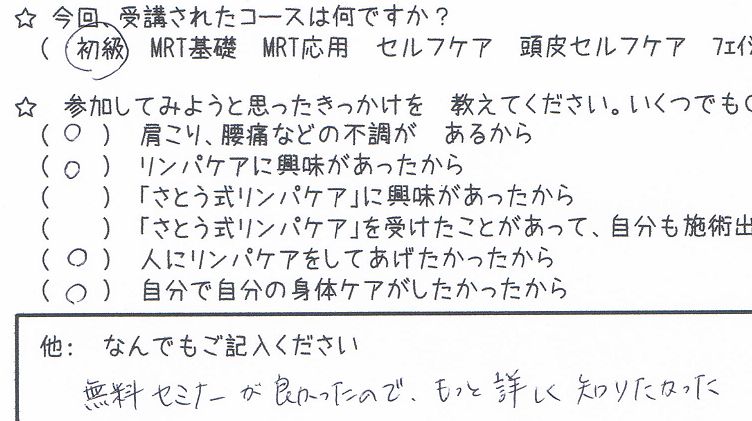 ☆ 今回、受講されたコースは何ですか？
( 初級 MRT基礎 MRT応用 セルフケア 頭皮セルフケア フェイシ
☆ 参加してみようと思ったきっかけを 教えてください。いくつでも○
( ○ ) 肩こり、腰痛などの不調が あるから
( ○ ) リンパケアに興味があったから
( ) 「さとう式リンパケア」に興味があったから
( ) 「さとう式リンパケア」を受けたことがあって、自分も施術出
( ○ ) 人にリンパケアをしてあげたかったから
( ○ ) 自分で自分の身体ケアがしたかったから
他: なんでもご記入ください
無料セミナーが良かったので、もっと詳しく知りたかった